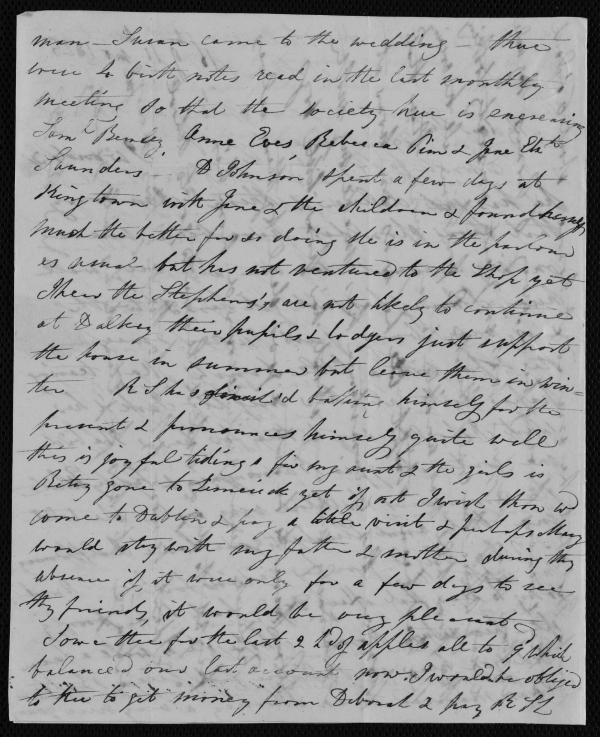 man – Susan came to the wedding – there
were 4 birth notes read in the last monthly
meeting so that the society here is encreasing
Saml Bewley Anne Eves Rebecca Pim & Jane Elizth
Saunders – D Johnson spent a few days at
Kingtown with Jane & the children & found himself
much the better for so doing He is in the parlour
as usual but has not ventured to the Shop yet
I hear the Stephens's are not likely to continue
at Dalkey their pupils & lodgers just support
the house in summer but leave them in win=
ter R S has finish'd bathing himself for the
present & pronounces himself quite well
this is joyful tidings for my aunt & the girls is
Betsy gone to Limerick yet if not I wish thou wd
come to Dublin & pay a little visit & perhaps Mary
would stay with my father & mother during thy
absence if it were only for a few days to see
thy friends, it would be very pleasant –
I owe thee for the last 2 of apples all to which
balanced our last account now I would be obliged
to thee to get money from Deborah & pay R